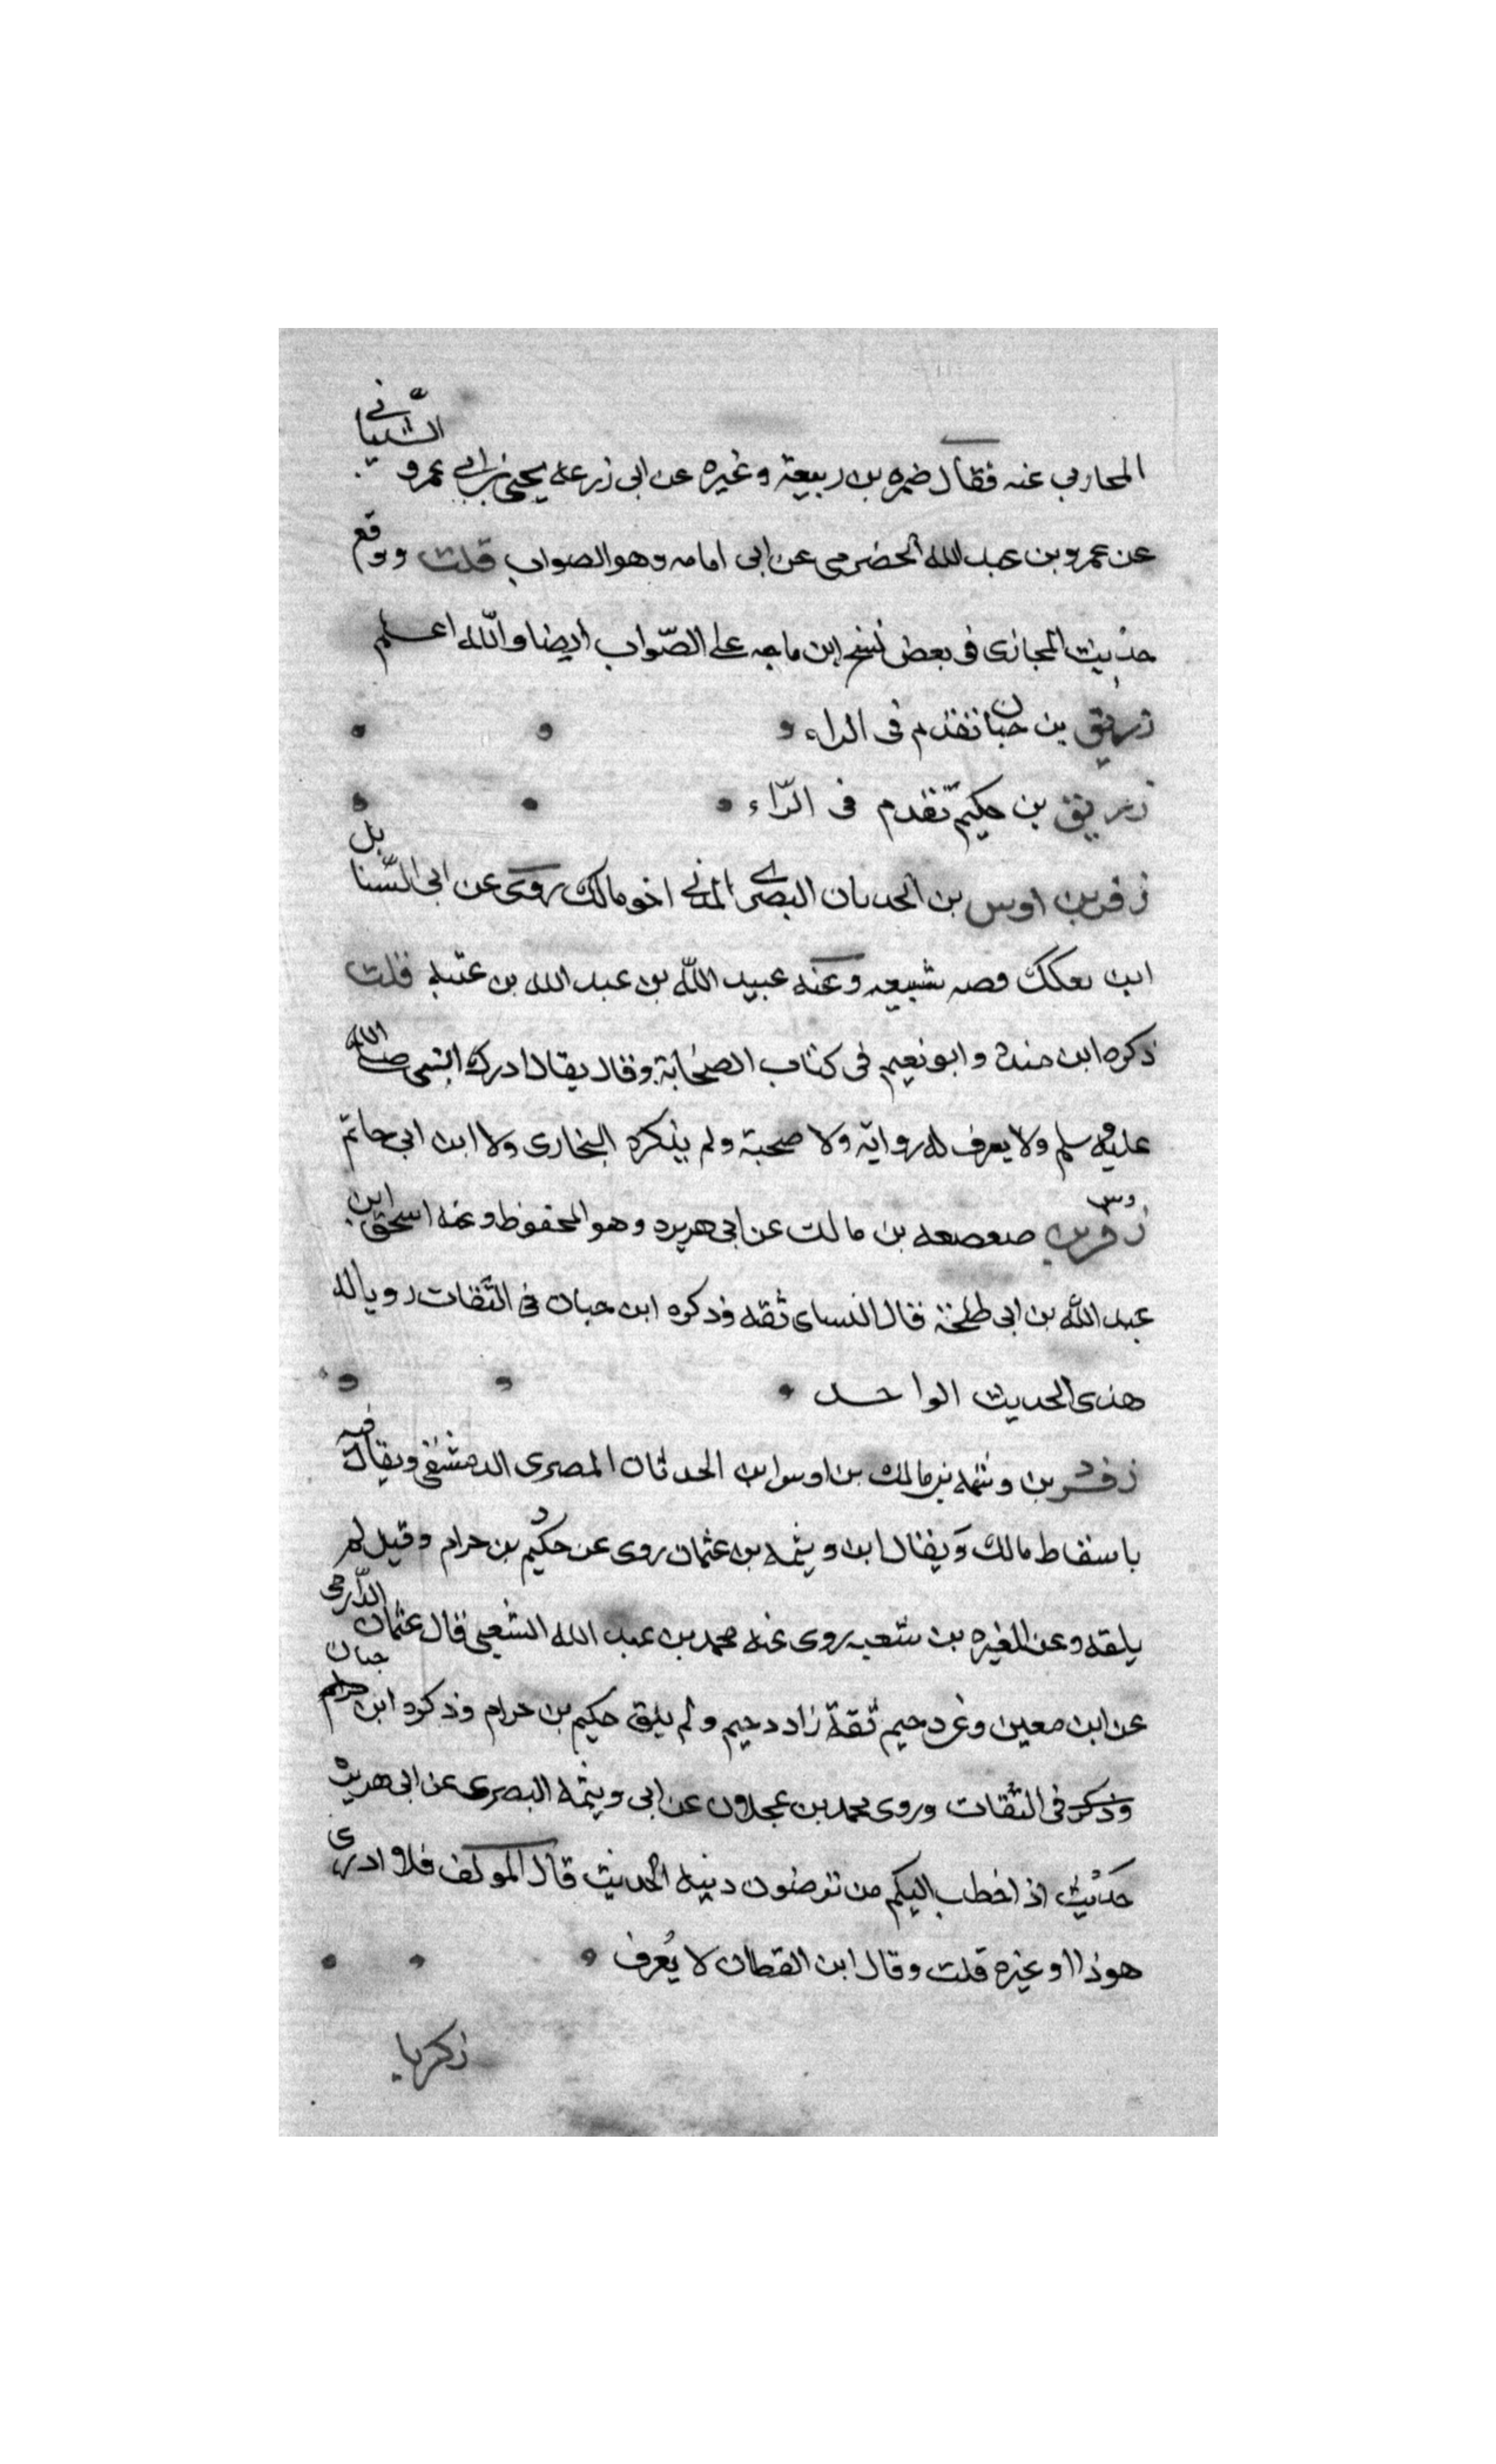 المحاربي عنه فقال ضمره بن ربيعة وغيره عن ابى زرعه يحيى بن ابي عمرو الشيباني
عن عمرو بن عبد الله الحضرمى عن ابى امامه وهو الصواب قلت ووقع
حديث المحازى فى بعض نسخ ابن ماجه على الصّواب ايضا والله اعلم
زريق بن حبان تقدم فى الراء
زريق بن حكيم تقدم فى الرّاء
زفر بن اوس بن الحدثان البصرى المدني اخو مالك روى عن ابى السّنابل
ابن بعكك قصه سبيعه وعنه عبيد الله بن عبد الله بن عتبه قلت
ذكره ابن منده وابو نعيم فى كتاب الصحابة وقال يقال ادرك النبى صلى الله
عليه وسلم ولا يعرف له رواية ولا صحبة ولم يذكره البخارى ولا ابن ابى حاتم
وس
زفر بن صعصعه بن مالك عن ابى هريره وهو المحفوظ وعنه اسحق ابن
عبد الله بن ابى طلحة قال النساى ثقه وذكره ابن حبان فى الثقات رويا له
هذى الحديث الواحد
د
زفر بن وثيمه بن مالك بن اوس ابن الحدثان المصرى الدمشقى ويقال فيه
باسقاط مالك ويقال ابن وثيمه بن عثمان روى عن حكيم بن حرام وقيل لم
يلقه وعن المغيره بن شعبه روى عنه محمد بن عبد الله الشعيثى قال عثمان الدّارمى
عن ابن معين وعن دحيم ثقة زاد دحيم ولم يلق حكيم بن حرام وذكره ابن حبان
وذكر فى الثقات وروى محمد بن عجلان عن ابى وثيمه البصرى عن ابى هريره
حديث اذ اخطب اليكم من ترضون دينه الحديث قال المولف فلا ادرى
هوذا او غيره قلت وقال ابن القطان لا يُعرف
زكريا